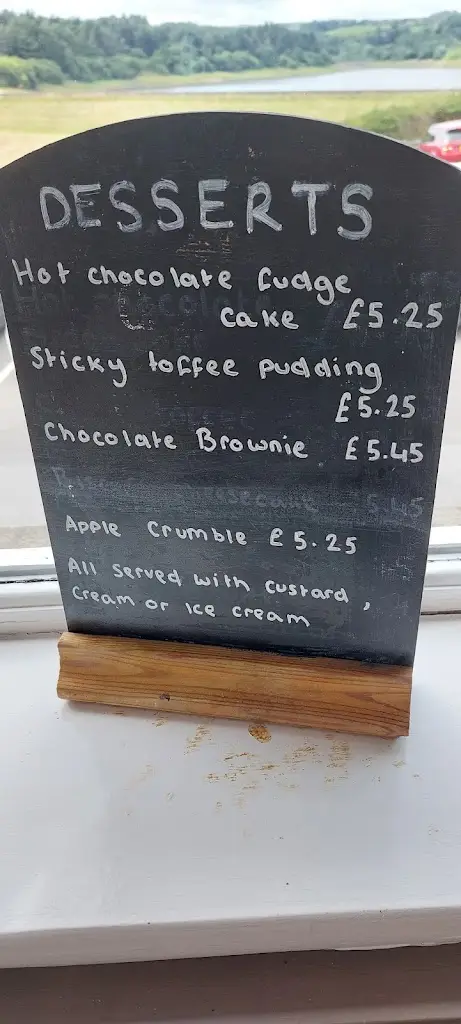 DESSERTS
Hot chocolate fudge
cake £5.25
Sticky toffee pudding
£5.25
Chocolate Brownie £5.45
Apple Crumble £5.25
All served with custard,
cream or ice cream